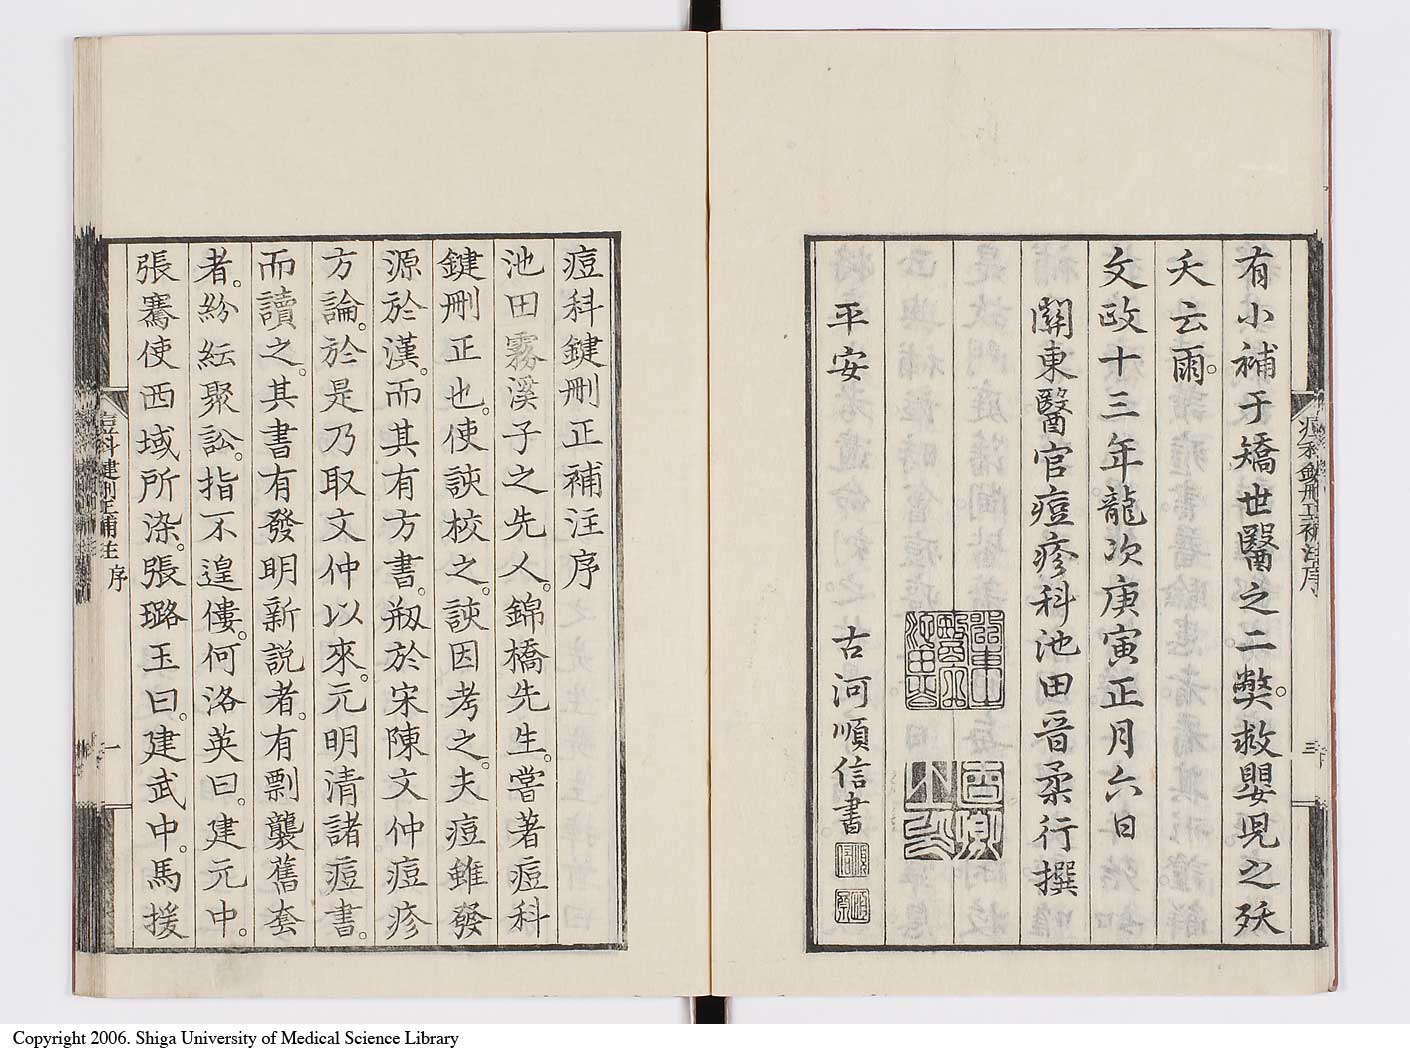 有小補于矯世醫之二弊。救嬰児之殀
夭云雨。
文政十三年龍次庚寅正月六日
關東醫官痘疹科池田晉柔行撰
平安 古河順信書
痘科鍵刪正補注序
三
痘科鍵刪正補注序
池田霧溪子之先人。錦橋先生。嘗著痘科
鍵刪正也。使諛校之。諛因考之。夫痘雖發
源於漢。而其有方書。刱於宋陳文仲痘疹
方論。於是乃取文仲以來。元明清諸痘書。
而讀之。其書有發明新説者。有剽襲舊套
者。紛紜聚訟。指不遑僂。何洛英曰。建元中。
張騫使西域所染。張璐玉曰。建武中。馬援
痘科鍵刪正補注 序
一
Copyright 2006. Shiga University of Medical Science Library